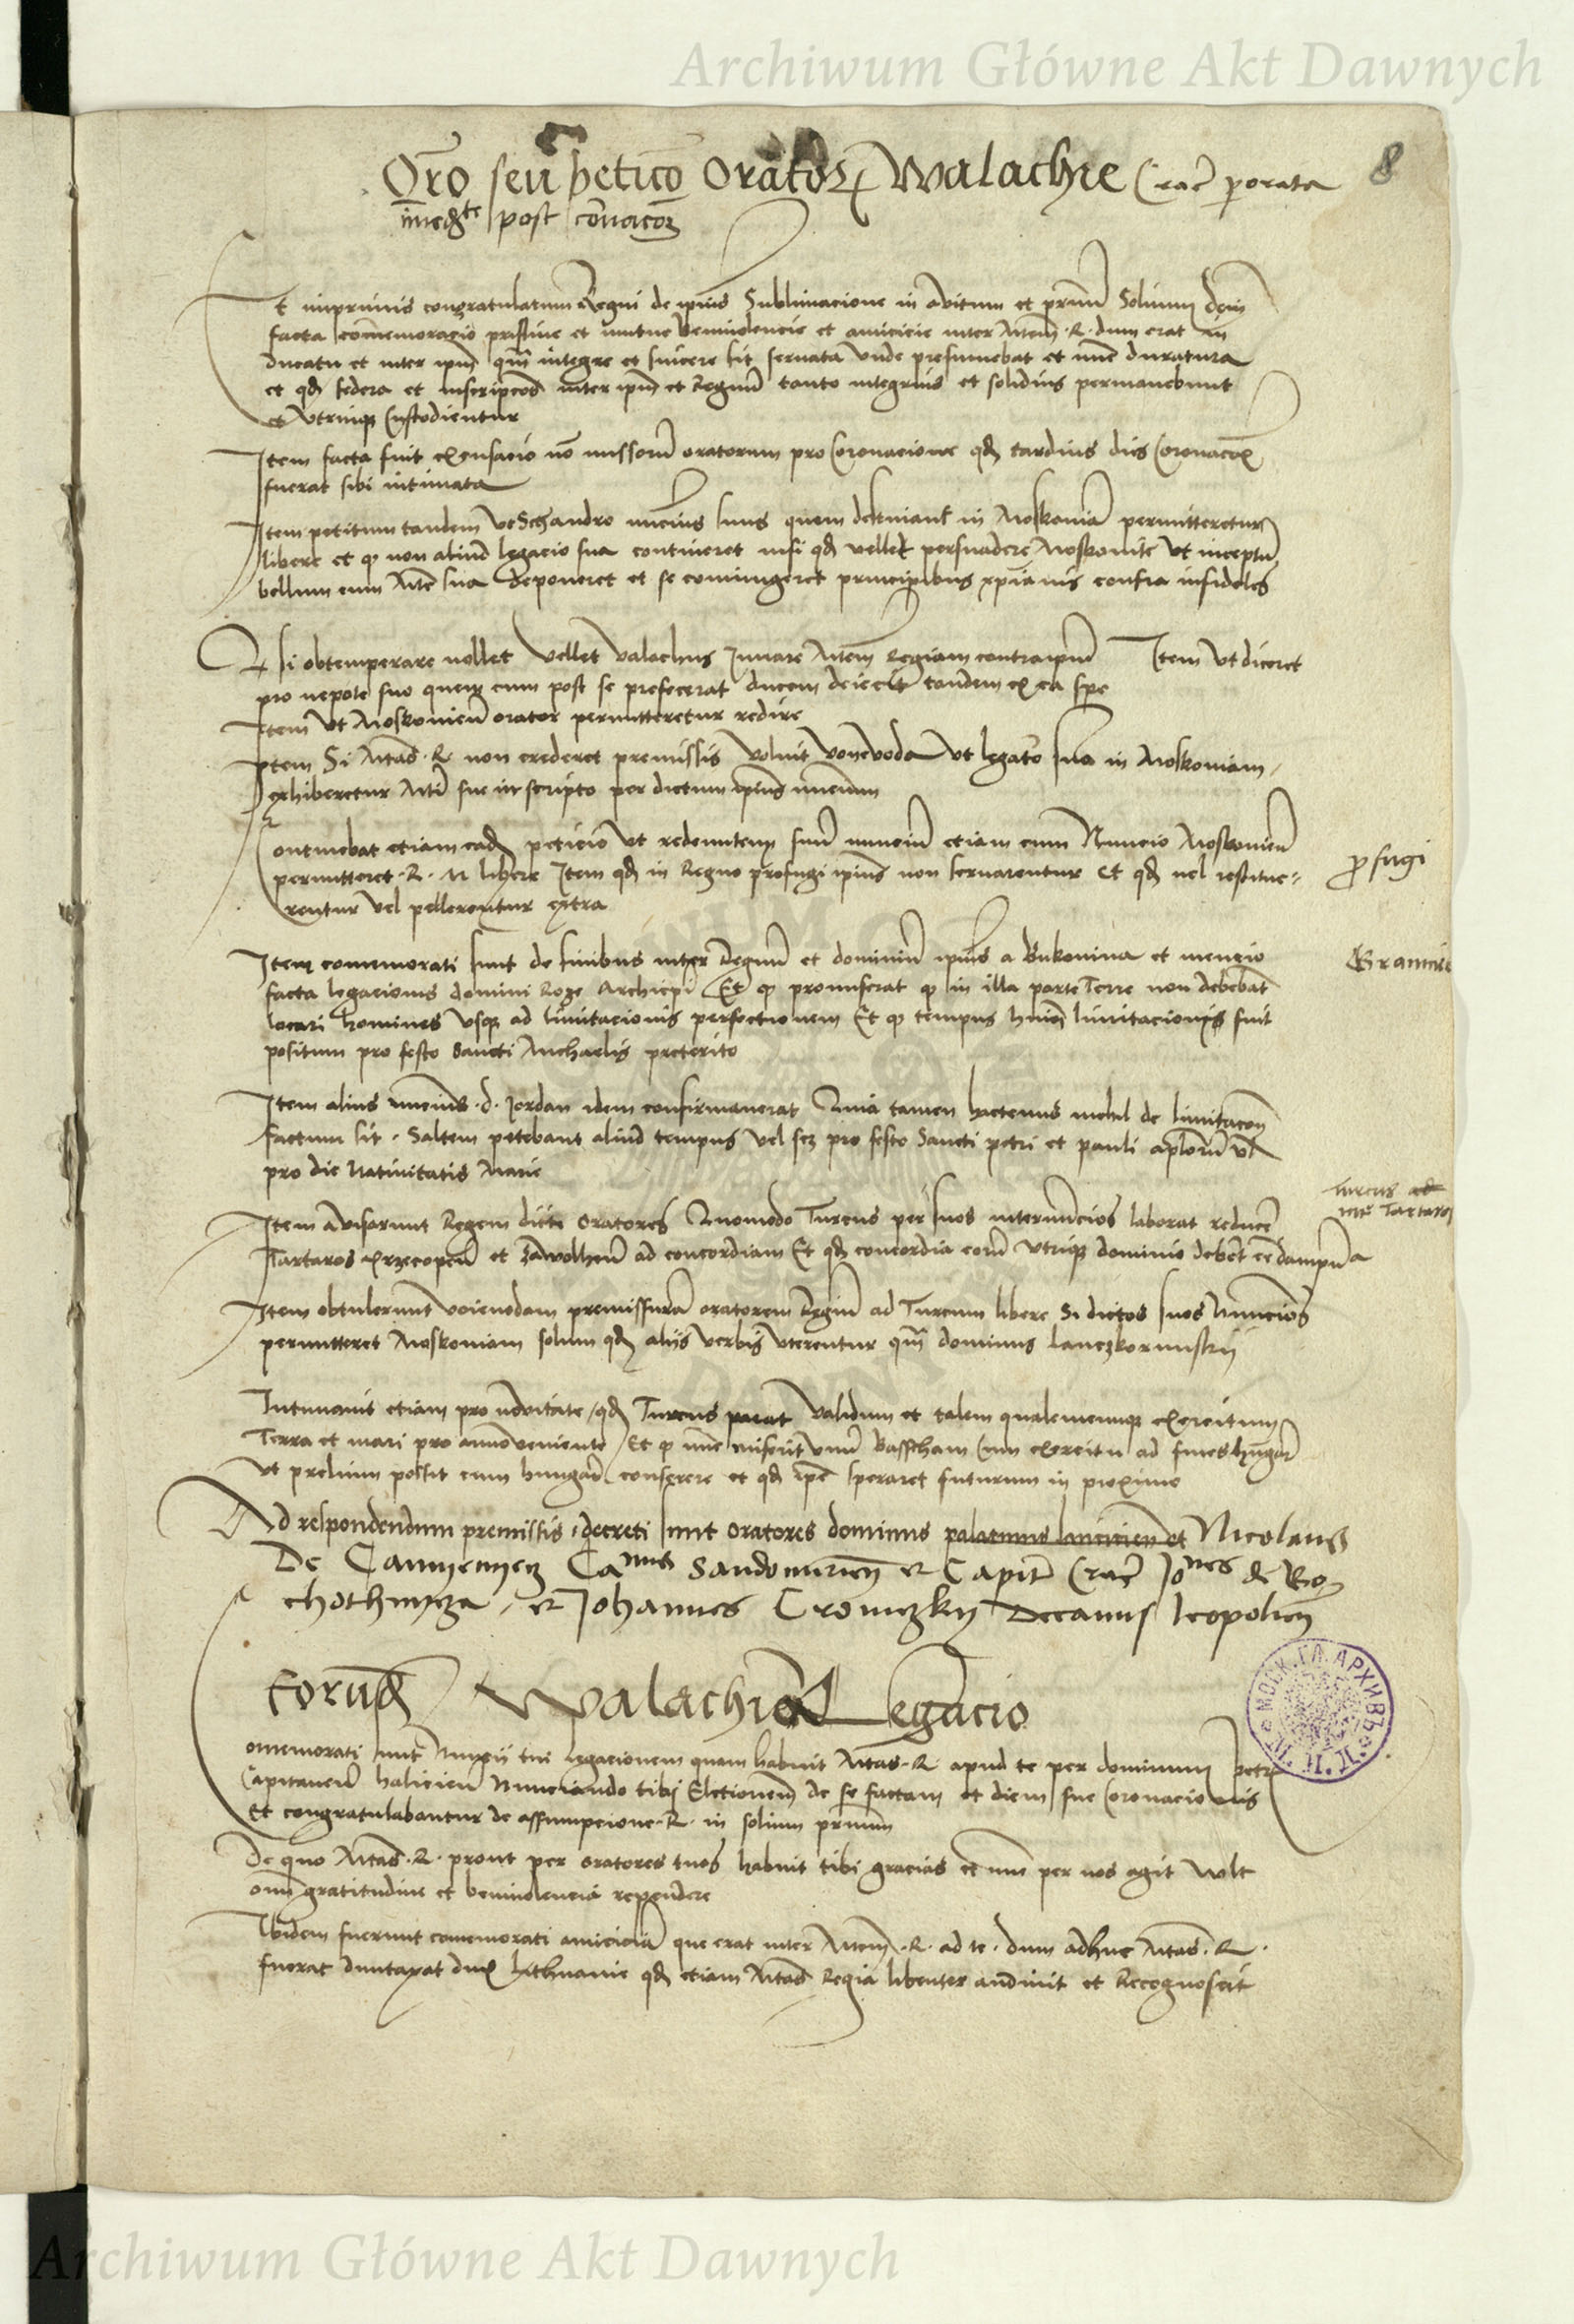 Archiwum Główne Akt Dawnych
8
Oro seu peticio Orator Walachie Crac perorata
immedte post coronacom
Et imprimis congratulatum Regni de ipius Sublimacione in Avitum et prnum Solium dein
facta commemoracio pristine et mutue benivolencie et amicicie inter Mtem R. dum erat in
ducatu et inter ipm qm integre et sincere sit servata Unde presumebat et nunc duratura
et qd federa et inscripcoes inter ipm et Regnu tanto integrius et solidius permanebunt
et Utrinq Custodientur
Item facta fuit excusacio no missoru oratorum pro Coronacione qd tardius dies Coronacois
fuerat sibi intimata
Item petitum tandem ut Schandro nuncius suus quem destinant in Moskoviam permitteretur
libere et q non aliud legacio sua contineret nisi qd vellet persuadere Moskovite Ut inceptu
bellum cum Mte sua deponeret et se coniungeret principibus xpianis contra infideles
Qsi obtemperare nollet vellet Valachus Juvare Mtem Regiam contra ipm Item Ut diceret
pro nepote suo quem cum post se prefecerat ducem deiecit tandem ex ea spe
Item Ut Moskovien orator permitteretur redire
Item Si Mtas R. non crederet premissis voluit Voyevoda Ut legato sua in Moskoviam
exhiberetur Mti sue in scripto per dictum ipius nuncium
Continebat etiam eadem peticio Ut redeuntem suu nunciu etiam cum Nuncio Moskovien
permitteret R. M libere Item qd in Regno profugi ipius non servarentur et qd vel restitue=
rentur vel pellerentur extra
profugi
Item comemorati sunt de finibus inter Regnu et dominiu ipius a Bukovina et mencio
facta legacionis domini Roze Archiepi Et q promiserat q in illa parte Terre non debebat
locari homines Usq ad limitacionis perfectionem Et q tempus huius limitacionis fuit
positum pro festo Sancti Michaelis preterito
Granicie
Item alius nuncius d. Jordan idem confirmaverat Quia tamen hactenus nichil de limitacon
factum sit. Saltem petebant aliud tempus vel scz pro festo Sancti petri et pauli aplorum vl
pro die Nativitatis Marie
Item Avisarunt Regem dicti oratores Quomodo Turcus per suos internuncios laborat reducere
Tartaros Przecopen et Zawolhen ad concordiam Et qd concordia eoru Utriq dominio debet ee dampna
Turcus ad
inter Tartaros
Item obtulerunt voievodam premissuru oratorem Regiu ad Turcum libere Si dictos suos Nuncios
permitteret Moskoviam solum qd aliis verbis uterentur qm dominus Lanczkorunskij
Intimavit etiam pro novitate qd Turcus parat validum et talem qualemcunq exercitum
Terra et mari pro anno veniente Et q nunc miserit unu Basscham cum exercitu ad fines hungar
Ut prelium possit cum hungar conserere et qd ipe speraret futurum in proximo
Ad respondendum premissis decreti sunt oratores dominus palatinus lancicien et Nicolaus
De Camyenyecz Canus Sandomirien et Capit Crac Jones de Ro
chothnycza et Johannes Cromczky Decanus leopolien
Eorundem Walachien Legacio
Comemorati sunt Nuncii tui legacionem quam habuit Mtas R. apud te per dominum petr
Capitaneu halicien Nunciando tibi Eleccionem de se factam et diem sue Coronacionis
Et congratulabantur de assumpcione R. in solium prnum
De quo Mtas R. prout per oratores tuos habuit tibi gracias et nunc per nos agit Volt
omi gratitudine et benivolencia rependere
Ibidem fuerunt comemorati amicicia que erat inter Mtem R. ad te dum adhuc Mtas R.
fuerat duntaxat dux lithuanie qd etiam Mtas Regia libenter audivit et Recognoscit
МОСК. ГЛ. АРХИВЪ
Archiwum Główne Akt Dawnych